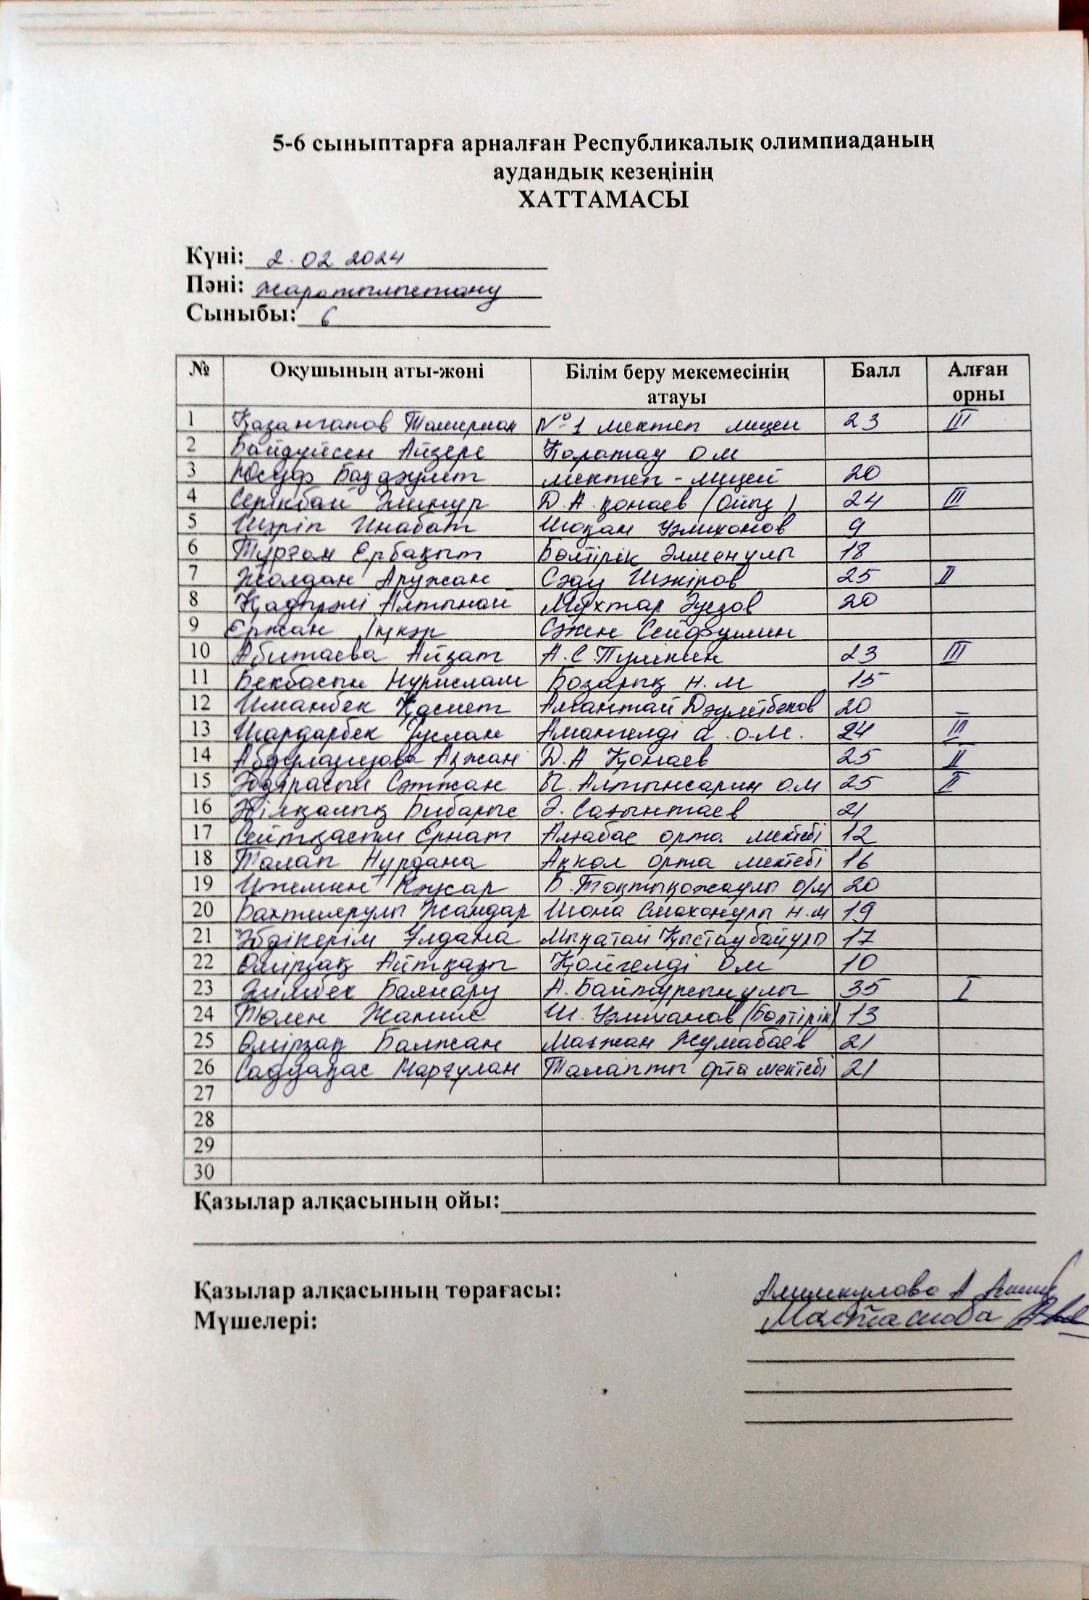 5-6 сыныптарға арналған Республикалық олимпиаданың
аудандық кезеңінің
ХАТТАМАСЫ
Күні: 2.02 2024
Пәні: жаратылыстану
Сыныбы: 6
№ Оқушының аты-жөні Білім беру мекемесінің атауы Балл Алған орны
1 Қазангапов Таширхан №1 мектеп лицей 23 III
2 Байдуйсен Айзере Қаратау О.М
3 Юсуф Баздәулет мектеп-лицей 20
4 Серікбай Әлинұр Д.А. Қонаев (Ойық) 24 III
5 Шәріп Инабат Шоқан Уәлиханов 9
6 Тұрған Ербақыт Бөлтірік Әлменұлы 18
7 Жолдан Аружан Сәду Шәкіров 25 II
8 Қадірәлі Алтынай Мұхтар Әуезов 20
9 Ержан Іңкәр Сәкен Сейфуллин
10 Абитаева Айзат А.С Пушкин 23 III
11 Бекбосын Нурислам Базарық н.м 15
12 Иманбек Қасиет Амантай Дәулетбеков 20 –
13 Шардарбек Руслан Амангелді а. о.м. 24 III
14 Абдулазизова Ақжан Д.А Қонаев 25 II
15 Әбдірасыл Сәтжан Ы. Алтынсарин о.м 25 II
16 Жілқайық Бибарыс Ә. Сағынтаев 21
17 Сейтқасым Ернат Ақтабас орта мектебі 12
18 Талап Нұрдана Ақкөл орта мектебі 16
19 Ижемин Қажар Б. Тоқтықожаұлы о/м 20
20 Бахтиярұлы Жандар Шона Смаханұлы н.м 19
21 Әбдікерім Ұлдана Мыңатай Қыстаубайұлы 17
22 Өмірзақ Айтқазы Қойгелді О.М 10
23 Әлібек Баянару А. Байтұрсынұлы 35 I
24 Төлен Жания Ш. Уәлиханов (Бөлтірік) 13
25 Өмірзақ Балжан Мағжан Жұмабаев 21
26 Садуақас Марғұлан Талапты орта мектебі 21
27
28
29
30
Қазылар алқасының ойы:
Қазылар алқасының төрағасы: Алимкулова А
Мүшелері: